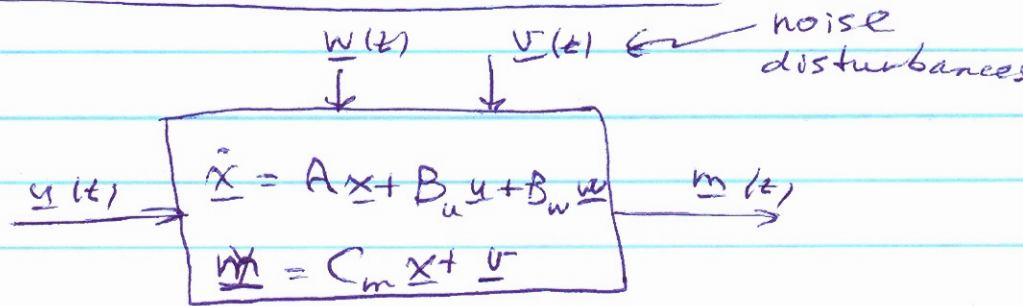 w(t) v(t) noise
disturbances
u(t) ẋ = Ax + B_u u + B_w w m(t)
m = C_m x + v